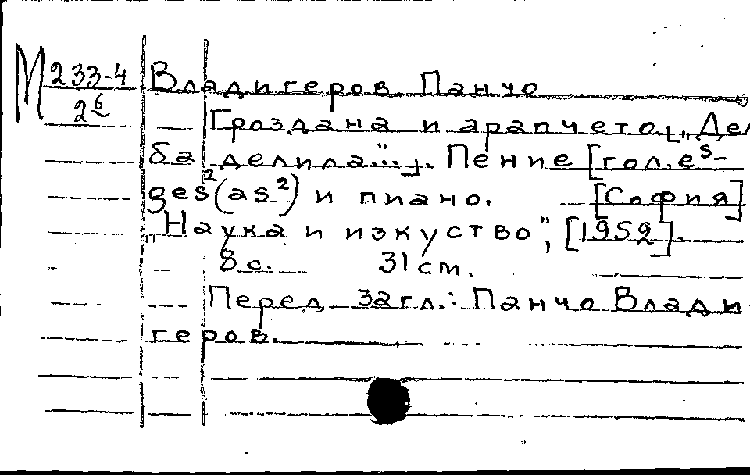 М 233-4
2б
Владигеров Панчо
Гроздана и арапчето. [„Дел
ба делила"...]. Пение [гол. es-
ges²(as²) и пиано. [София]
„Наука и изкуство", [1952].
8 с. 31 см.
Перед загл.: Панчо Влади
геров.